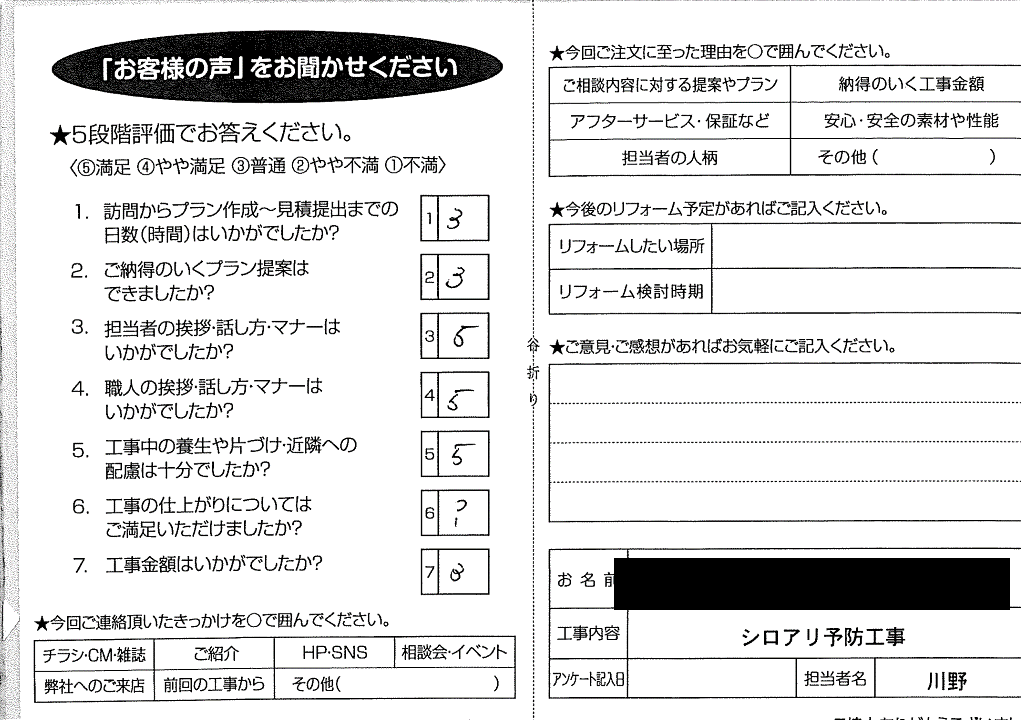 「お客様の声」をお聞かせください
★5段階評価でお答えください。
〈⑤満足 ④やや満足 ③普通 ②やや不満 ①不満〉
1. 訪問からプラン作成～見積提出までの
日数(時間)はいかがでしたか?
1 3
2. ご納得のいくプラン提案は
できましたか?
2 3
3. 担当者の挨拶・話し方・マナーは
いかがでしたか?
3 5
4. 職人の挨拶・話し方・マナーは
いかがでしたか?
4 5
5. 工事中の養生や片づけ・近隣への
配慮は十分でしたか?
5 5
6. 工事の仕上がりについては
ご満足いただけましたか?
6 ?
7. 工事金額はいかがでしたか?
7
★今回ご連絡頂いたきっかけを○で囲んでください。
チラシ・CM・雑誌 ご紹介 HP・SNS 相談会・イベント
弊社へのご来店 前回の工事から その他( )
谷折り
★今回ご注文に至った理由を○で囲んでください。
ご相談内容に対する提案やプラン 納得のいく工事金額
アフターサービス・保証など 安心・安全の素材や性能
担当者の人柄 その他( )
★今後のリフォーム予定があればご記入ください。
リフォームしたい場所
リフォーム検討時期
★ご意見・ご感想があればお気軽にご記入ください。
お名前
工事内容 シロアリ予防工事
アンケート記入日 担当者名 川野